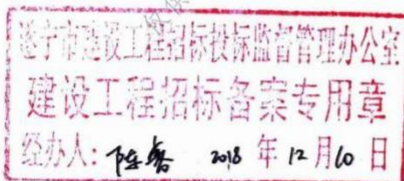 遂宁市建设工程招标投标监督管理办公室
建设工程招标备案专用章
经办人: 陈 2018 年 12 月 10 日